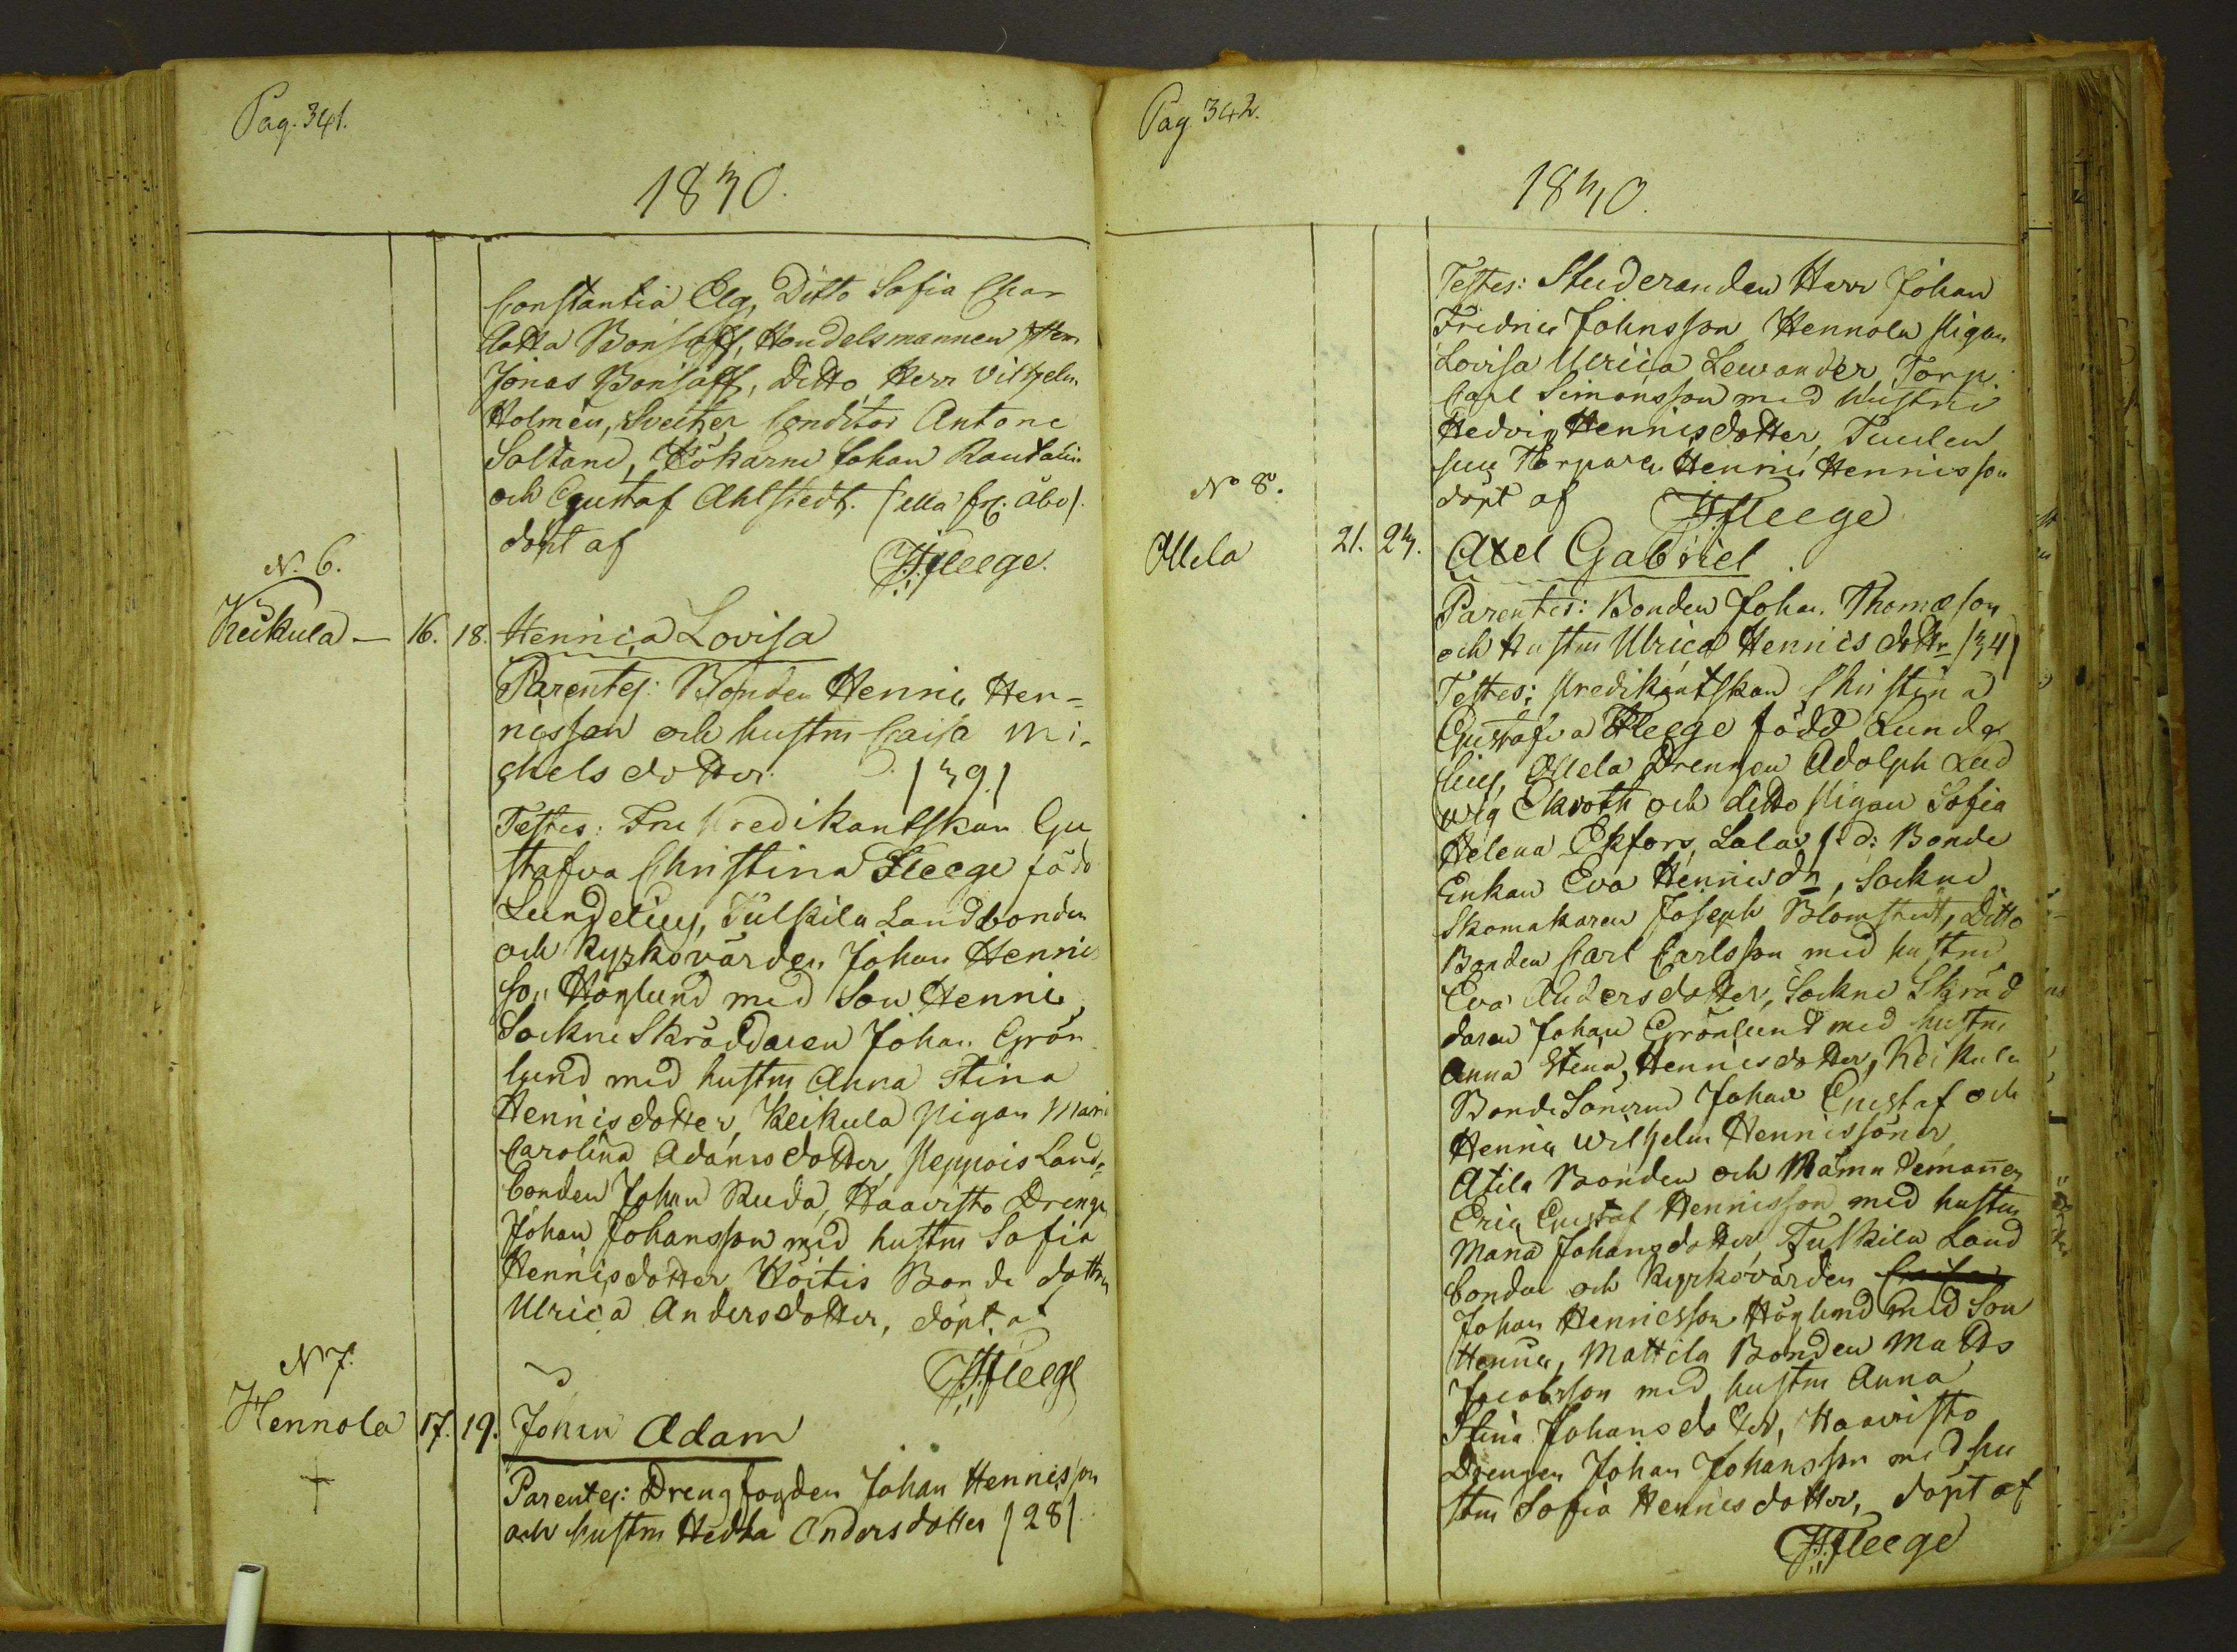 Pag. 341.
1840.
Constantia Elg, Ditto Sofia Char
lotta Bonsdorff, Handelsmannen Herr
Jonas Bonsdorff, ditto Herr Vilhelm
Holmén, Conditor Antone
Saltane, Johan
och Gustaf Ahlstedt. (alla fr. Åbo).
döpt af
Fleege.
N. 6.
Keikula — 16. 18. Henrica Lovisa
Parentes: Bonden Henric Hen-
ricsson och hustru Caisa Mi-
chelsdotter. (39.)
Testes: Fru Predikantskan Gu
stafva Christina Fleege född
Lundelius, Tulkila Landbonden
och Kyrkovärden Johan Henrics
son Höglund med Son Henric,
Sockne Skräddaren Johan Grön
lund med hustru Anna Stina
Henricsdotter, Keikula Pigan Mari
Carolina Adamsdotter, Peppois Land-
bonden Johan Ruda, Haavisto Drengen
Johan Johansson med hustru Sofia
Henricsdotter, Hoitis Bonde dottren
Ulrica Andersdotter, döpt af
Fleege
N 7.
Hennola 17. 19. Johan Adam
Parentes: Drengfogden Johan Henricsson
och hustru Hedda Andersdotter (28).
Pag. 342.
1840.
Testes: Studeranden Herr Johan
Fredric Johnsson, Hennola Pigan
Lovisa Ulrica Lewander, Torp.
Carl Simonsson med hustru
Hedvig Henricsdotter,
Torparen Henric Henricsson
döpt af Fleege
No 8.
Ollela 21. 24. Axel Gabriel
Parentes: Bonden Johan Thomæson
och Hustru Ulrica Henricsdottr (34)
Testes: Predikantskan Christina
Gustafva Fleege född Lunde
lius, Ollela Drengen Adolph Lud
wig Ekroth och ditto Pigan Sofia
Helena Ekfors, Bonde
Enkan Eva Henricsdr, Sockne
Skomakaren Joseph Blomstedt, Ditto
Bonden Carl Carlsson med hustru
Eva Andersdotter, Sockne Skräd
daren Johan Grönlund med hustru
Anna Stina Henricsdotter, Keikula
Bonde Sönerne Johan Gustaf och
Henric Wilhelm Henricssöner,
Atila Bonden och Nämndemannen
Eric Gustaf Henricsson med hustru
Maria Johansdotter, Tulkila Land
bonden och Kyrkovärden
Johan Henricsson Höglund med Son
Henric, Mattila Bonden Matts
Jacobsson med hustru Anna
Stina Johansdotter, Haavisto
Drengen Johan Johansson med hu
stru Sofia Henricsdotter, döpt af
Fleege